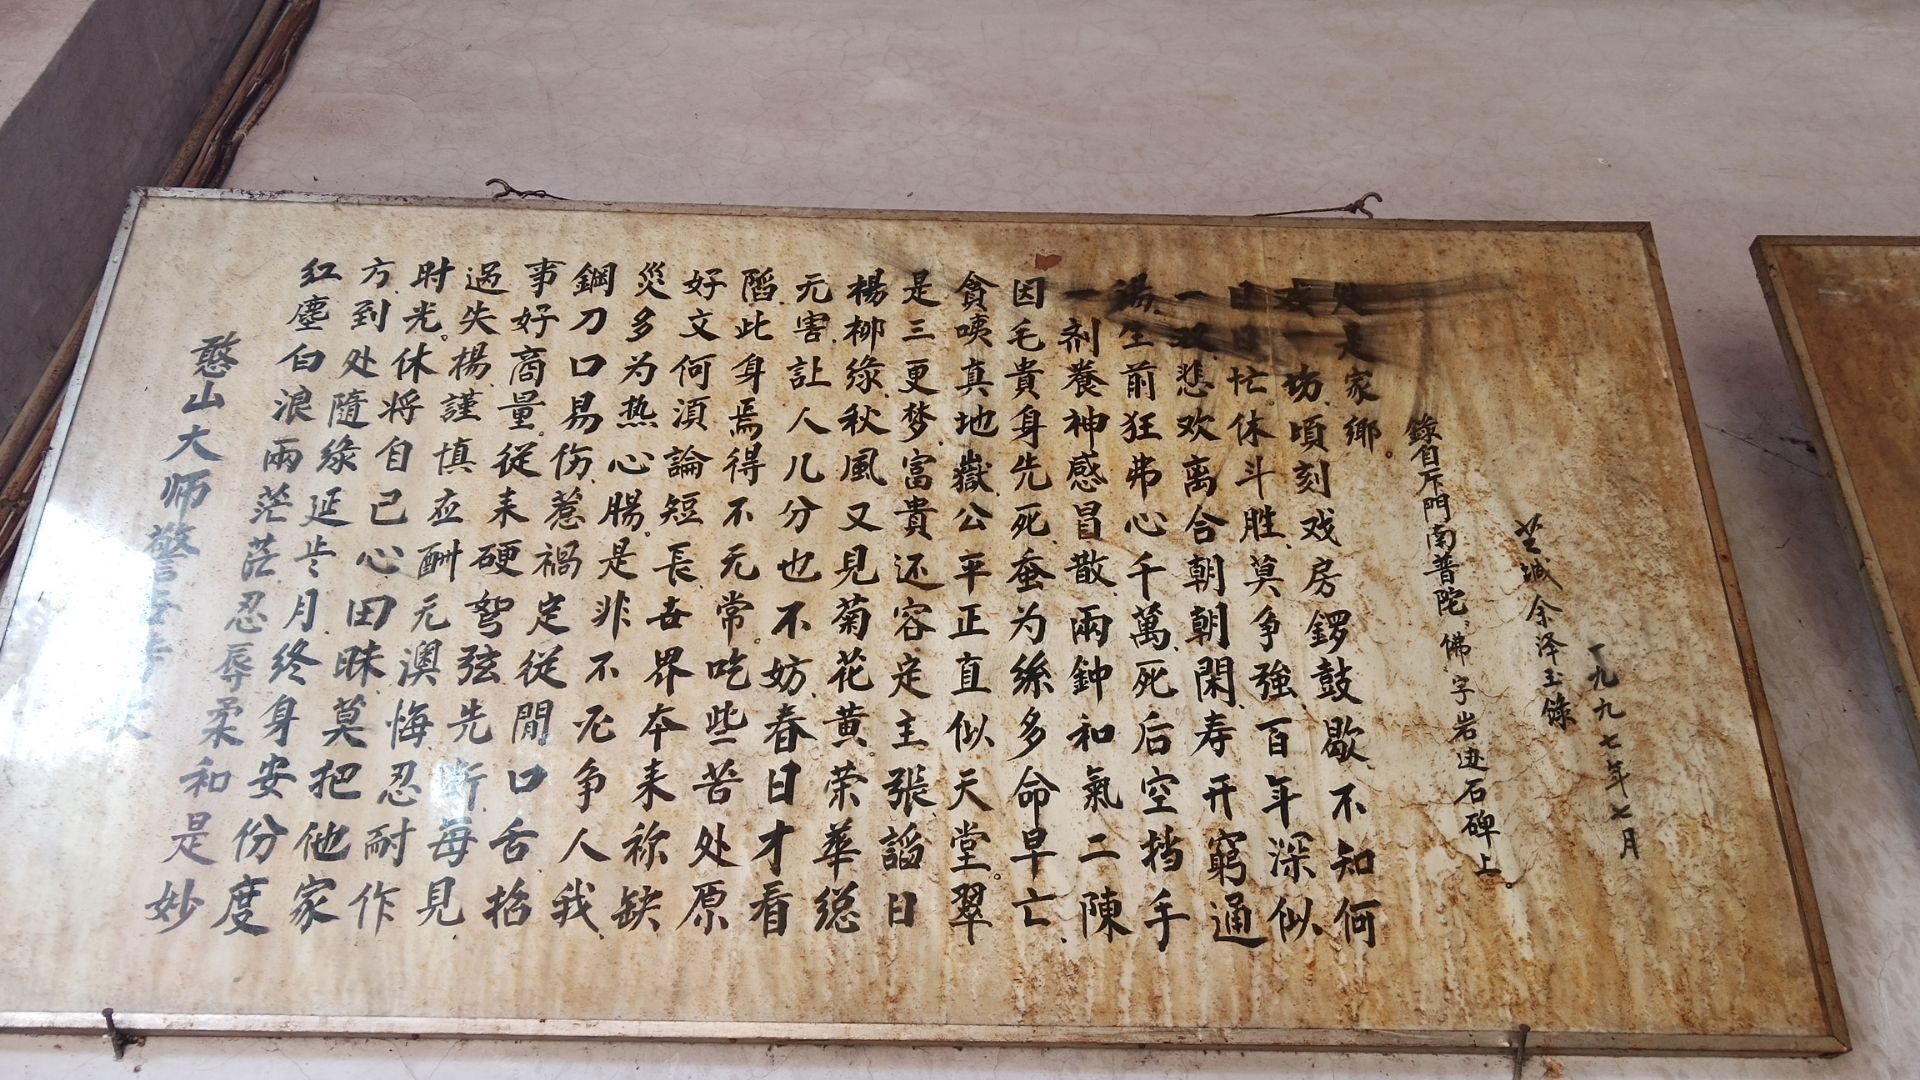 憨山大师警
红塵白浪兩茫茫忍辱柔和是妙
方到处隨緣延岁月终身安份度
时光。休将自己心田昧莫把他家
过失楊謹慎应酬元澳悔忍耐作
事好商量。從来硬弩弦先断每見
鋼刀口易伤惹禍定從閒口舌招
災多为热心腸。是非不必争人我
好文何須論短長世界本来称缺
陷此身焉得不元常。吃些苦处原
元害让人几分也不妨春日才看
楊柳緑秋風又見菊花黄。荣華総
是三更梦富貴还容定主張謟日
貪咦真地嶽公平正直似天堂。翠
因毛貴身先死蚕为絲多命早亡
一剂養神感冒散兩鈡和氣二陳
湯生前狂弗心千萬死后空挡手
一双悲欢离合朝朝閑寿开窮通
日日忙。休斗胜莫争強百年深似
戏一场頃刻戏房鑼鼓歇不知何
处是家鄉。
錄自厈門南普陀佛字岩边石碑上。
芝城余泽玉錄
一九九七年七月